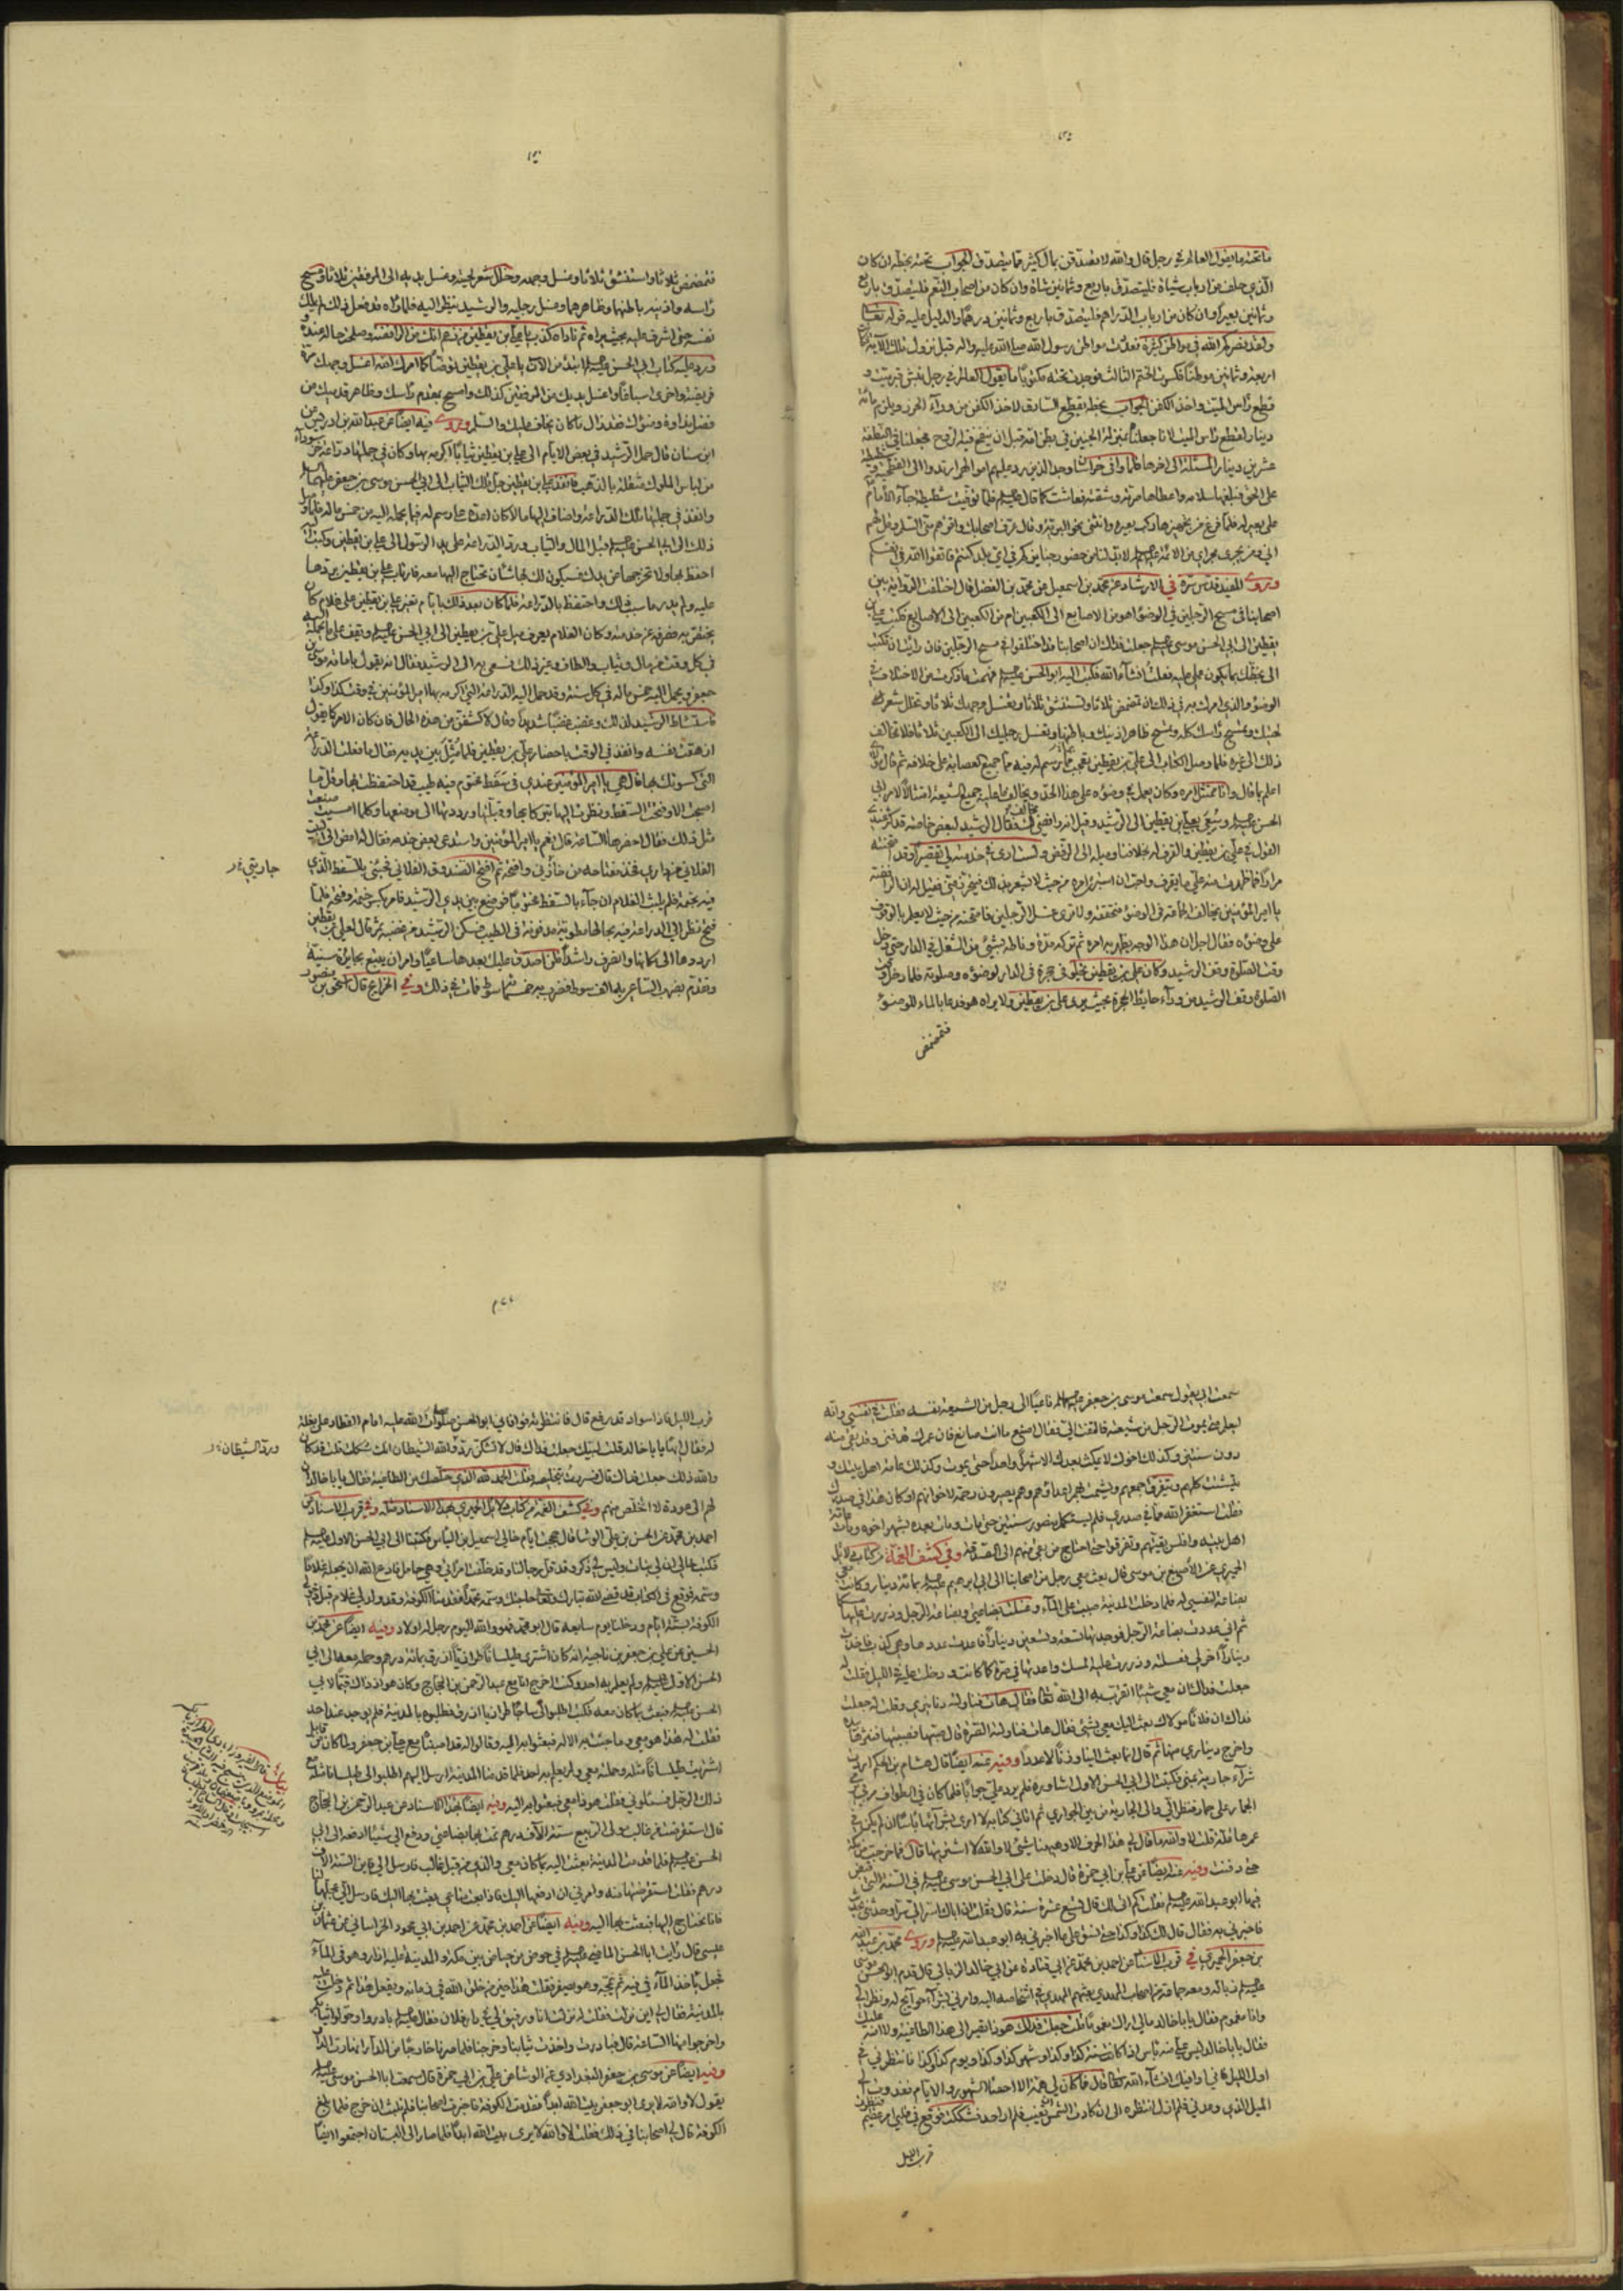 ما تحته ما يقول العالم في رجل قال والله لاتصدقن بمال كثير فما يتصدق الجواب تحته بخطه ان كان
الذي حلف من ارباب شياه فليتصدق باربع وثمانين شاة وان كان من اصحاب النعم فليتصدق باربع
وثمانين بعيرا وان كان من ارباب الدراهم فليتصدق باربع وثمانين درهما والدليل عليه قوله تعالى
ولقد نصركم الله في مواطن كثيرة فعددت مواطن رسول الله صلى الله عليه واله قبل نزول تلك الاية فكانت
اربعة وثمانين موطنا فكسرت الختم الثالث فوجدت تحته مكتوبا ما يقول العالم في رجل نبش قبر ميت و
قطع راس الميت واخذ الكفن الجواب بخطه يقطع السارق لاخذ الكفن من وراء الحرز ويلزم مائة
دينار لقطع راس الميت لانا جعلناه بمنزلة الجنين في بطن امه قبل ان ينفخ فيه الروح فجعلنا في النطفة
عشرين دينارا المسئلة الى اخرها فلما وافى خراسان وجد الذين رد عليهم اموالهم ارتدوا الى الفطحية وشطيطة
على الحق فبلغها سلامه واعطاها صرته وشقته فعاشت كما قال عليه السلم فلما توفيت شطيطة جاء الامام
على بعير له فلما فرغ من تجهيزها ركب بعيره وانثنى نحو البرية وقال عرف اصحابك واقرئهم مني السلم وقل لهم
اني ومن يجري مجراي من الائمة عليهم السلم لا بد لنا من حضور جنايزكم في اي بلد كنتم فاتقوا الله في انفسكم
وروى المفيد قدس سره في الارشاد عن محمد بن اسمعيل عن محمد بن الفضل قال اختلفت الرواية بين
اصحابنا في مسح الرجلين في الوضوء اهو من الاصابع الى الكعبين ام من الكعبين الى الاصابع فكتب علي بن
يقطين الى ابي الحسن موسى عليه السلم جعلت فداك ان اصحابنا قد اختلفوا في مسح الرجلين فان رايت ان تكتب
الي بخطك بما يكون عملي عليه فعلت انشاء الله فكتب اليه ابو الحسن عليه السلم فهمت ما ذكرت من الاختلاف في
الوضوء والذي امرك به في ذلك ان تمضمض ثلاثا وتستنشق ثلاثا وتغسل وجهك ثلاثا وتخلل شعر
لحيتك وتمسح راسك كله وتمسح ظاهر اذنيك وباطنها وتغسل رجليك الى الكعبين ثلاثا ولا تخالف
ذلك الى غيره فلما وصل الكتاب الى علي بن يقطين تعجب مما رسم له فيه مما جميع العصابة على خلافه ثم قال مولاي
اعلم بما قال وانا ممتثل امره وكان يعمل في وضوءه على هذا الحد ويخالف ما عليه جميع الشيعة امتثالا لامر ابي
الحسن عليه السلم وسعي بعلي بن يقطين الى الرشيد وقيل انه رافضي مخالف لك فقال الرشيد لبعض خاصته قد كثر عندي
القول في علي بن يقطين والقرف له بخلافنا وميله الى الرفض ولست ارى في خدمته لي تقصيرا وقد امتحنته
مرارا فما ظهرت منه على ما يقرف به واحب ان استبرئ امره من حيث لا يشعر بذلك فيتحرز مني فقيل له ان الرافضة
يا امير المؤمنين تخالف الجماعة في الوضوء فتخففه ولا ترى غسل الرجلين فامتحنه من حيث لا يعلم بالوقوف
على وضوءه فقال اجل ان هذا الوجه يظهر به امره ثم تركه مدة وناطه بشيء من الشغل في الدار حتى دخل
وقت الصلوة وقف الرشيد وكان علي بن يقطين يخلو في حجرة في الدار لوضوءه وصلوته فلما دخل وقت
الصلوة وقف الرشيد من وراء حايط الحجرة بحيث يرى علي بن يقطين ولا يراه هو فدعا بالماء للوضوء
فتمضمض
فتمضمض ثلاثا واستنشق ثلاثا وغسل وجهه وخلل شعر لحيته وغسل يديه الى المرفقين ثلاثا ومسح
راسه واذنيه باطنهما وظاهرهما وغسل رجليه والرشيد ينظر اليه فلما راه قد فعل ذلك لم يملك
نفسه حتى اشرف عليه بحيث يراه ثم ناداه كذب يا علي بن يقطين من زعم انك من الرافضة وصلحت حاله عنده و
ورد عليه كتاب ابي الحسن عليه السلم ابتدء من الان يا علي بن يقطين توضأ كما امرك الله اغسل وجهك مرة
فريضة واخرى اسباغا واغسل يديك من المرفقين كذلك وامسح بمقدم راسك وظاهر قدميك من
فضل نداوة وضوئك فقد زال ما كان يخاف عليك والسلم وروى فيه ايضا عن عبد الله بن ادريس عن
ابن سنان قال حمل الرشيد في بعض الايام الى علي بن يقطين ثيابا اكرمه بها وكان في جملتها دراعة خز سوداء
من لباس الملوك مثقلة بالذهب فانفذ علي بن يقطين جل تلك الثياب الى ابي الحسن موسى بن جعفر عليهما السلم
وانفذ في جملتها تلك الدراعة واضاف اليها مالا كان اعده على رسم له فيما يحمله اليه من خمس ماله فلما وصل
ذلك الى ابي الحسن عليه السلم قبل المال والثياب ورد الدراعة على يد الرسول الى علي بن يقطين وكتب اليه
احتفظ بها ولا تخرجها عن يدك فسيكون لك بها شان تحتاج اليها معه فارتاب علي بن يقطين بردها
عليه ولم يدر ما سبب ذلك واحتفظ بالدراعة فلما كان بعد ذلك بايام تغير علي بن يقطين على غلام كان
يختص به فصرفه عن خدمته وكان الغلام يعرف ميل علي بن يقطين الى ابي الحسن عليه السلم ويقف على ما يحمله اليه
في كل وقت من مال وثياب والطاف وغير ذلك فسعى به الى الرشيد فقال انه يقول بامامة موسى بن
جعفر ويحمل اليه خمس ماله في كل سنة وقد حمل اليه الدراعة التي اكرمه بها امير المؤمنين في وقت كذا وكذا
فاستشاط الرشيد لذلك وغضب غضبا شديدا وقال لاكشفن عن هذه الحال فان كان الامر كما يقول
ازهقت نفسه وانفذ في الوقت باحضار علي بن يقطين فلما مثل بين يديه قال ما فعلت الدراعة
التي كسوتك بها قال هي يا امير المؤمنين عندي في سفط مختوم فيه طيب قد احتفظت بها وقل ما
اصبحت الا وفتحت السفط ونظرت اليها تبركا بها وقبلتها ورددتها الى موضعها وكلما امسيت صنعت
مثل ذلك فقال احضرها الساعة قال نعم يا امير المؤمنين واستدعى بعض خدمه فقال له امض الى البيت
الفلاني من داري فخذ مفتاحه من خازني وافتحه ثم افتح الصندوق الفلاني فجئني بالسفط الذي
جاريتي خ ر
فيه بختمه فلم يلبث الغلام ان جاء بالسفط مختوما فوضع بين يدي الرشيد فامر بكسر ختمه وفتحه فلما
فتح نظر الى الدراعة فيه بحالها مطوية مدفونة في الطيب فسكن الرشيد من غضبه ثم قال لعلي بن يقطين
ارددها الى مكانها وانصرف راشدا فلن اصدق عليك بعدها ساعيا وامر ان يتبع بجايزة سنية
وتقدم بضرب الساعي به الف سوط فضرب نحو خمسمائة سوط فمات في ذلك وفي الخرايج قال اسحق بن منصور
سمعت ابي يقول سمعت موسى بن جعفر عليهما السلم ناعيا الى رجل من الشيعة نفسه فقلت في نفسي وانه
ليعلم متى يموت الرجل من شيعته فالتفت الي فقال اصنع ما انت صانع فان عمرك قد فني وقد بقي منه
دون سنتين وكذلك اخوك لا يمكث بعدك الا شهرا واحدا حتى يموت وكذلك عامة اهل بيتك و
يتشتت كلهم ويتفرق جمعهم ويشمت بهم اعداؤهم وهم يصيرون رحمة لاخوانهم اكان هذا في صدرك
فقلت استغفر الله مما في صدري فلم يستكمل منصور سنتين حتى مات ومات بعده بشهر اخوه ومات عامة
اهل بيته وافلس بقيتهم وتفرقوا حتى احتاج من بقي منهم الى الصدقة وفي كشف الغمة من كتاب دلايل
الحميري عن الاصبغ بن موسى قال بعث معي رجل من اصحابنا الى ابي ابراهيم عليه السلم بمائة دينار وكانت معي
بضاعة لنفسي وله فلما دخلت المدينة صببت علي الماء وغسلت بضاعتي وبضاعة الرجل وذررت عليها مسكا
ثم اني عددت بضاعة الرجل فوجدتها تسعة وتسعين دينارا فاعدت عددها وهي كذلك فاخذت
دينارا اخر لي فغسلته وذررت عليه المسك واعدتها في صرة كما كانت ودخلت عليه في الليل فقلت له
جعلت فداك ان معي شيئا اتقرب به الى الله تعالى فقال هات فناولته دنانيري وقلت له جعلت
فداك ان فلانا مولاك بعث اليك معي بشيء فقال هات فناولته الصرة قال صبها فصببتها فنثرها بيده
واخرج ديناري منها ثم قال انما بعث الينا وزنا لا عددا وفيه عنه ايضا قال هشام بن الحكم اردت
شراء جارية بمنى فكتبت الى ابي الحسن الاول اشاوره فلم يرد علي جوابا فلما كان في الطواف مر بي يرمي
الجمار على حمار فنظر الي والى الجارية من بين الجواري ثم اتاني كتابه لا ارى بشرائها باسا ان لم يكن في
عمرها قلة قلت لا والله ما قال لي هذا الحرف الا وههنا شيء لا والله لا اشتريها قال فما خرجت من مكة
حتى دفنت وفيه عنه ايضا عن علي بن ابي حمزة قال دخلت على ابي الحسن موسى عليه السلم في السنة التي قبض
فيها ابو عبد الله عليه السلم فقلت كم اتى لك قال تسع عشرة سنة قال فقلت ان اباك اسر الي سرا وحدثني بحديث
فاخبرني به فقال قال لك كذا وكذا حتى نسق علي ما اخبرني به ابو عبد الله عليه السلم وروى محمد بن عبد الله
بن جعفر الحميري في قرب الاسناد عن احمد بن محمد عن ابي قتادة عن ابي خالد الزبالي قال قدم ابو الحسن موسى
عليه السلم زبالة ومعه جماعة من اصحاب المهدي بعثهم المهدي في اشخاصه اليه وامرني بشراء حوايج له ونظر الي
وانا مغموم فقال يا ابا خالد مالي اراك مغموما قلت جعلت فداك هوذا تصير الى هذا الطاغية ولا امنه عليك
فقال يا ابا خالد ليس علي منه باس اذا كانت سنة كذا وكذا وشهر كذا وكذا ويوم كذا وكذا فانتظرني في
اول الليل فاني اوافيك انشاء الله تعالى قال فما كان لي همة الا احصاء الشهور والايام فغدوت الى
الميل الذي وعدني فلم ازل انتظره الى ان كادت الشمس ان تغيب فلم ار احدا فشككت فوقع في قلبي امر عظيم فنظرت
قرب الليل
قرب الليل فاذا سواد قد رفع قال فانتظرته فوافاني ابو الحسن صلوات الله عليه امام القطار على بغلة
له فقال ايها يا ابا خالد قلت لبيك جعلت فداك قال لا تشكن ود والله الشيطان انك شككت قلت قد كان
ورد الشيطان خ ر
والله ذلك جعلت فداك قال فسررت بتخليصه وقلت الحمد لله الذي خلصك من الطاغية فقال يا ابا خالد ان
لهم الي عودة لا اتخلص منهم وفي كشف الغمة من كتاب دلايل الحميري بهذا الاسناد مثله وفي قرب الاسناد عن
احمد بن محمد عن الحسن بن علي الوشا قال حججت ايام خالي اسمعيل بن الياس فكتبنا الى ابي الحسن الاول عليه السلم
فكتب خالي ان لي بنات وليس لي ذكر وقد قل رجالنا وقد خلفت امراتي وهي حامل فادع الله ان يجعله غلاما
وسمه فوقع في الكتاب قد قضى الله تبارك وتعالى حاجتك وسمه محمدا فقدمنا الكوفة وقد ولد لي غلام قبل دخولي
الكوفة بستة ايام ودخلنا يوم سابعه قال ابو محمد فهو والله اليوم رجل له اولاد وفيه ايضا عن محمد بن
الحسين عن علي بن جعفر بن ناجية انه كان اشترى طيلسانا طرازيا ازرق بمائة درهم وحمله معه الى ابي
الحسن الاول عليه السلم ولم يعلم به احد وكنت اخرج انا مع عبد الرحمن بن الحجاج وكان هو اذ ذاك قيما لابي
الحسن عليه السلم فبعث بما كان معه فكتب اطلبوا لي ساجا طرازيا ازرق فطلبوه بالمدينة فلم يوجد عند احد
فقلت له هذا هو معي وما جئت به الا له فبعثوا به اليه وقالوا له قد اصبناه مع علي بن جعفر ولما كان من قابل
اشتريت طيلسانا مثله وحملته معي ولم يعلم به احد فلما قدمنا المدينة ارسل اليهم اطلبوا لي طيلسانا مثله مع
ذلك الرجل فسئلوني فقلت هوذا معي فبعثوا به اليه وفيه ايضا بهذا الاسناد عن عبد الرحمن بن الحجاج
قال استقرضت من غالب مولى الربيع ستة الاف درهم تمت بها بضاعتي ودفع الي شيئا ادفعه الى ابي
الحسن عليه السلم فلما قدمت المدينة بعثت اليه بما كان معي والذي من قبل غالب فارسل الي فاين الستة الاف
درهم فقلت استقرضتها منه وامرني ان ادفعها اليك فاذا بعت متاعي بعثت بها اليك فارسل الي عجلها لنا
فانا نحتاج اليها فبعثت بها اليه وفيه ايضا عن احمد بن محمد عن احمد بن ابي محمود الخراساني عن عثمان بن
عيسى قال رايت ابا الحسن الماضي عليه السلم في حوض من حياض بين مكة والمدينة عليه ازار وهو في الماء
فجعل ياخذ الماء في فيه ثم يمجه وهو يصفر فقلت هذا خير من خلق الله في زمانه ويفعل هذا ثم دخلت عليه
بالمدينة فقال لي اين نزلت فقلت له نزلت انا ورفيق لي في دار فلان فقال عليه السلم بادروا وحولوا ثيابكم
واخرجوا منها الساعة قال فبادرت واخذت ثيابنا وخرجنا فلما صرنا خارجا من الدار انهارت الدار
وفيه ايضا عن موسى بن جعفر البغدادي عن الوشا عن علي بن ابي حمزة قال سمعت ابا الحسن موسى عليه السلم
يقول لا والله لا يرى ابو جعفر بيت الله ابدا فقدمت الكوفة فاخبرت اصحابنا فلم نلبث ان خرج فلما بلغ
الكوفة قال لي اصحابنا في ذلك فقلت لا والله لا يرى بيت الله ابدا فلما صار الى البستان اجتمعوا ايضا